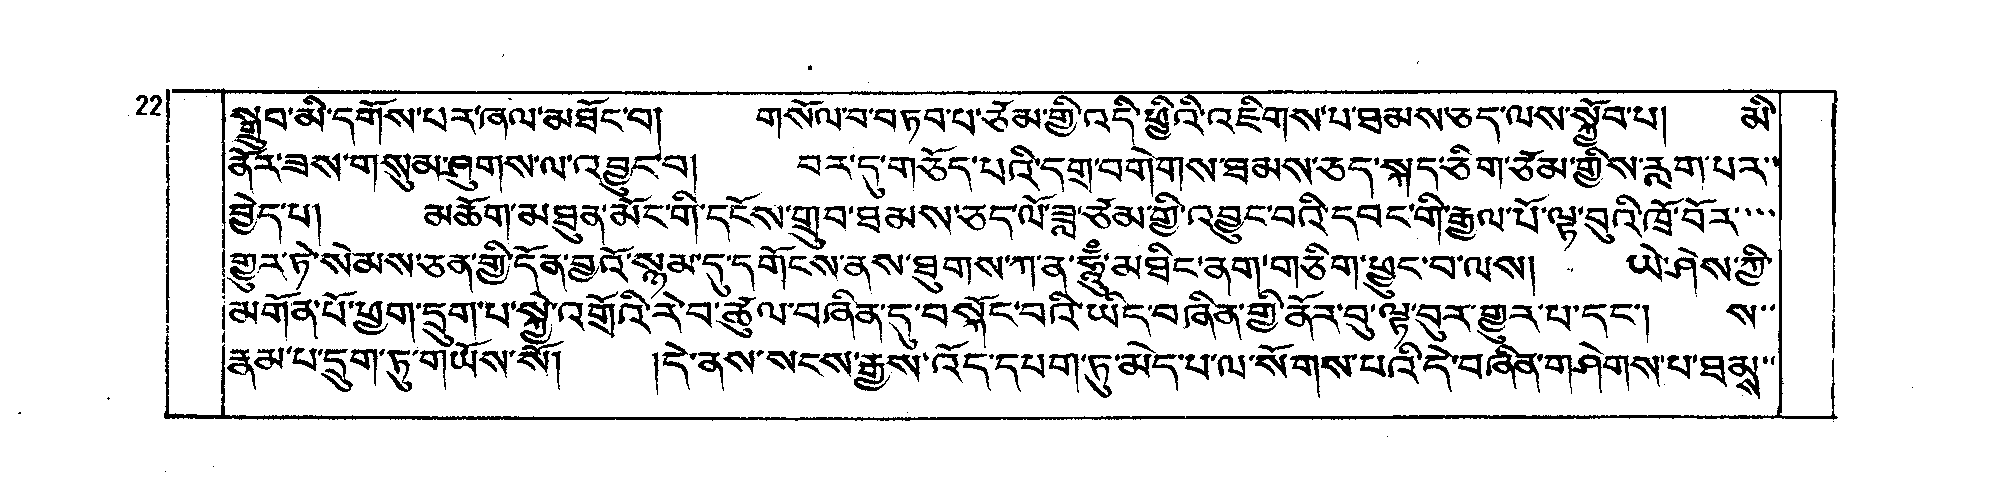 22 སྒྲུབ་མི་དགོས་པར་ཞལ་མཐོང་བ། གསོལ་བ་བཏབ་པ་ཙམ་གྱི་འདི་ཕྱིའི་འཇིགས་པ་ཐམས་ཅད་ལས་སྐྱོབ་པ། མི་
ནོར་ཟས་གསུམ་ཤུགས་ལ་འབྱུང་བ། བར་དུ་གཅོད་པའི་དགྲ་བགེགས་ཐམས་ཅད་སྐད་ཅིག་ཙམ་གྱིས་རླག་པར་
བྱེད་པ། མཆོག་མཐུན་མོང་གི་དངོས་གྲུབ་ཐམས་ཅད་ལོ་ཟླ་ཙམ་གྱི་འབྱུང་བའི་དབང་གི་རྒྱལ་པོ་ལྟ་བུའི་ཁྲོ་བོར་
གྱུར་ཏེ་སེམས་ཅན་གྱི་དོན་བྱའོ་སྙམ་དུ་དགོངས་ནས་ཐུགས་ཀ་ན་ཧཱུྃ་མཐིང་ནག་གཅིག་ཕྱུང་བ་ལས། ཡེ་ཤེས་ཀྱི་
མགོན་པོ་ཕྱག་དྲུག་པ་སྐྱེ་འགྲོའི་རེ་བ་ཚུལ་བཞིན་དུ་བསྐོང་བའི་ཡིད་བཞིན་གྱི་ནོར་བུ་ལྟ་བུར་གྱུར་པ་དང་། ས་
རྣམ་པ་དྲུག་ཏུ་གཡོས་སོ། །དེ་ནས་སངས་རྒྱས་འོད་དཔག་ཏུ་མེད་པ་ལ་སོགས་པའི་དེ་བཞིན་གཤེགས་པ་ཐམས